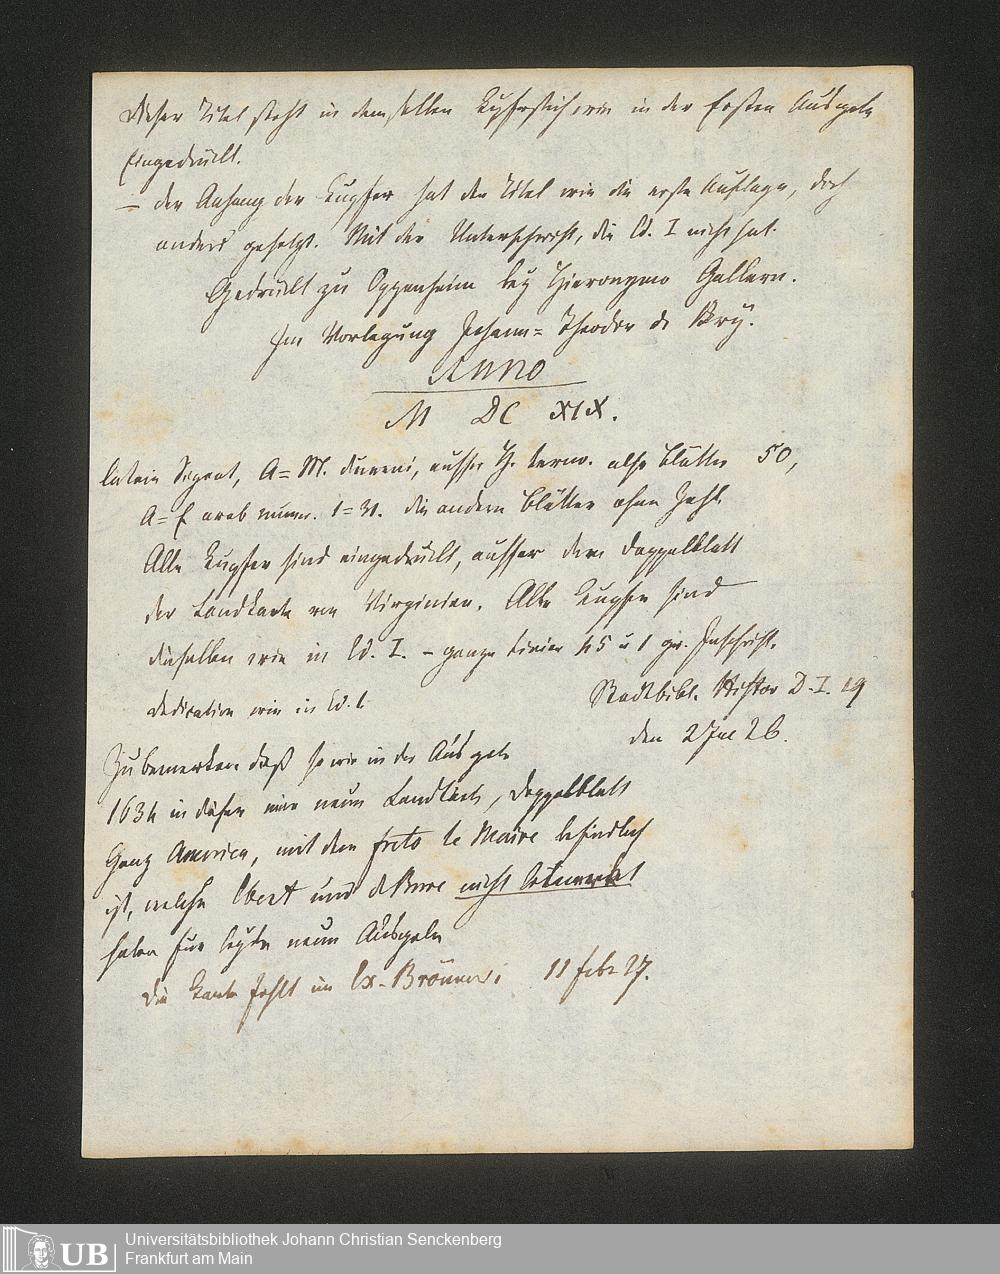 Dieser Titel steht in demselben Kupferstich wie in der ersten Ausgabe
Eingedruckt.
– der Anhang der Kupfer hat den Titel wie die erste Auflage, doch
anders gesetzt. Mit der Unterschrift, die Ed. I nicht hat.
Gedruckt zu Oppenheim bey Hieronymo Gallern.
In Vorlegung Johann= Theodor de Bry.
Anno
M DC XIX.
latein Signat, A= M. , ausser tern. also Blätter 50,
A= f arab numer. 1=31. die andern Blätter ohne Zahl
Alle Kupfer sind eingedruckt, ausser dem Doppelblatt
der Landkarte von Virginien. Alle Kupfer sind
dieselben wie in Ed. I. – ganze u 1 Inschrift.
Dedication wie in Ed. I.
Stadtbibl. Histor D. I. 19
den 2 Jul 26.
Zu bemerken daß so wie in der Ausgabe
1634 in dieser eine neue Landkarte, Doppelblatt
Ganz America, mit dem freto le Maire befindlich
ist, welche Ebert und de Bure nicht
haben für letzte neue Ausgabe
die Karte fehlt im Ex. Brönneri 11 febr 27.
Universitätsbibliothek Johann Christian Senckenberg
Frankfurt am Main
UB